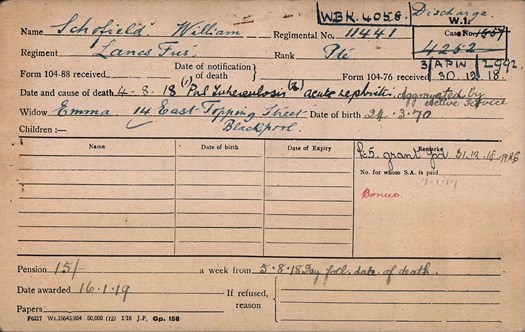 Name Schofield William Regimental No. 11441
W.B.R. 4056. Discharge.
W.1.
Case No. 1857
4252
Regiment Lancs Fus. Rank Pte
3/APIN/2992
Form 104-88 received Date of notification of death Form 104-76 received 30.12.18.
Date and cause of death 4-8-18 (1) Pul Tuberculosis (2) acute nephritis Aggravated by Active Service
Widow Emma. 14 East Topping Street Blackpool Date of birth 24.3.70
Children :—
Name Date of birth Date of Expiry Remarks
£5. grant 31.12.18
No. for whom S.A. is paid
Bonus
Pension 15/- a week from 5.8.18 Day foll. date of death.
Date awarded 16.1.19
If refused, reason
Papers
F6217 Wt.15643/804 50,000 (12) 1/18 J.P. Gp. 158